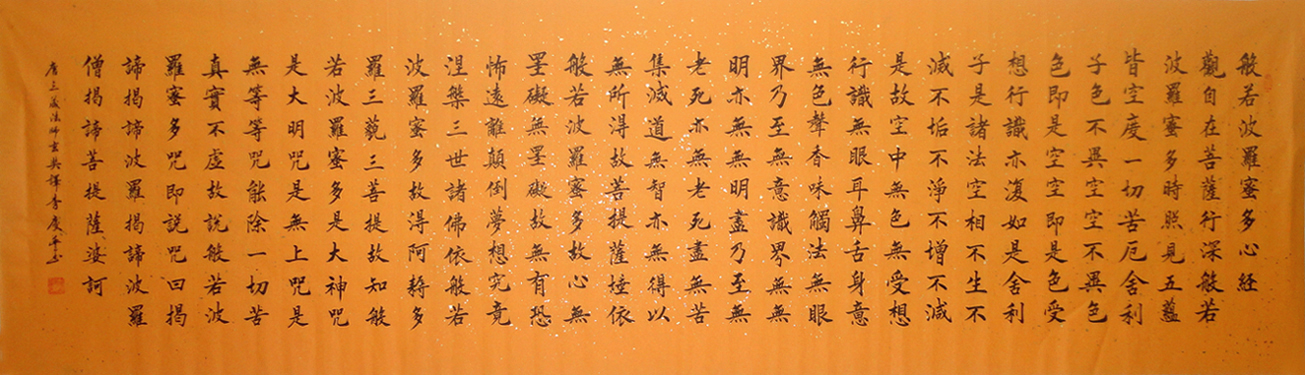 般若波羅蜜多心経
觀自在菩薩行深般若
波羅蜜多時照見五蘊
皆空度一切苦厄舍利
子色不異空空不異色
色即是空空即是色受
想行識亦復如是舍利
子是諸法空相不生不
滅不垢不淨不增不減
是故空中無色無受想
行識無眼耳鼻舌身意
無色聲香味觸法無眼
界乃至無意識界無無
明亦無無明盡乃至無
老死亦無老死盡無苦
集滅道無智亦無得以
無所得故菩提薩埵依
般若波羅蜜多故心無
罣礙無罣礙故無有恐
怖遠離顛倒夢想究竟
涅槃三世諸佛依般若
波羅蜜多故得阿耨多
羅三藐三菩提故知般
若波羅蜜多是大神咒
是大明咒是無上咒是
無等等咒能除一切苦
真實不虛故說般若波
羅蜜多咒即說咒曰揭
諦揭諦波羅揭諦波羅
僧揭諦菩提薩婆訶
唐三藏法師玄奘譯李慶平書